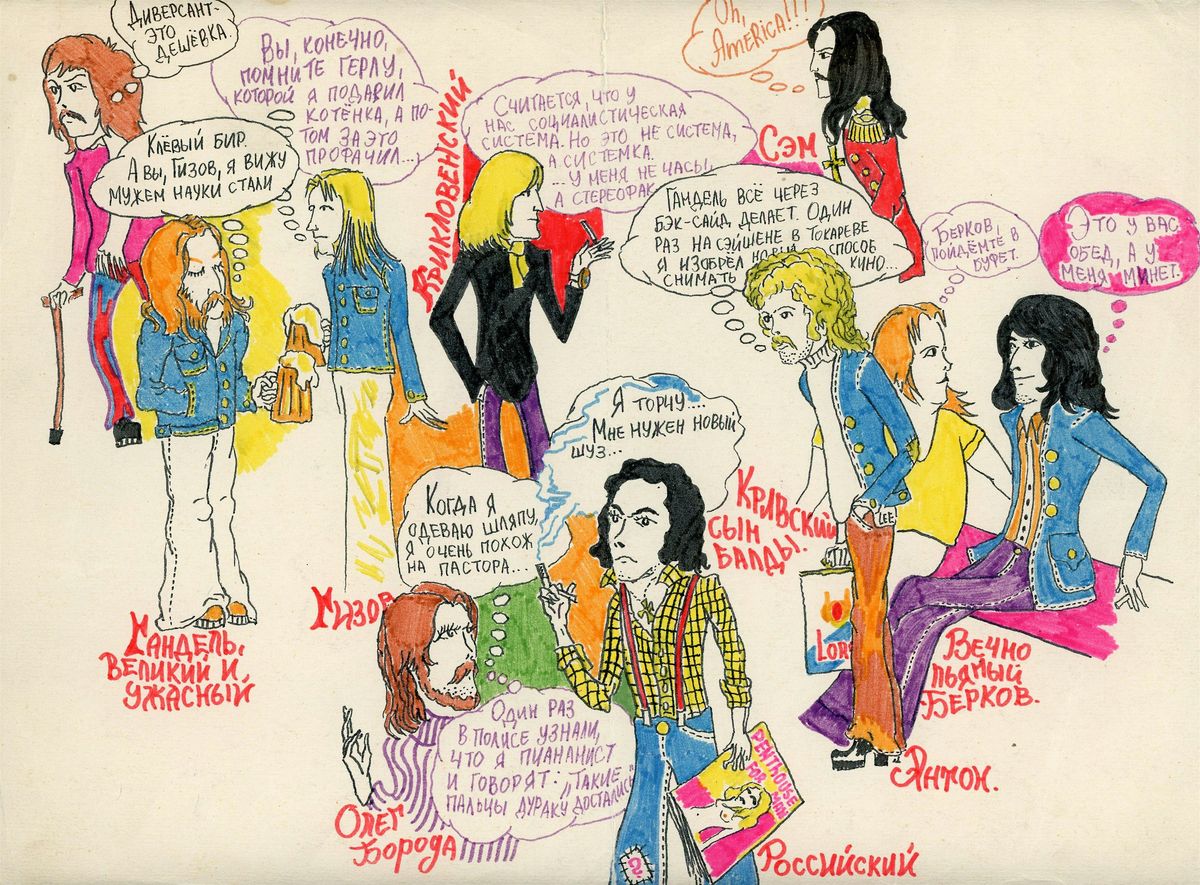 ДИВЕРСАНТ-
ЭТО
ДЕШЁВКА.
ВЫ, КОНЕЧНО,
ПОМНИТЕ ГЕРЛУ,
КОТОРОЙ Я ПОДАРИЛ
КОТЁНКА, А ПО-
ТОМ ЗА ЭТО
ПРОФАЧИЛ...
КЛЁВЫЙ БИР.
А ВЫ, ГИЗОВ, Я ВИЖУ
МУЖЕМ НАУКИ СТАЛИ
КРИКЛОВЕНСКИЙ
СЧИТАЕТСЯ, ЧТО У
НАС СОЦИАЛИСТИЧЕСКАЯ
СИСТЕМА. НО ЭТО НЕ СИСТЕМА,
А СИСТЕМКА.
... У МЕНЯ НЕ ЧАСЫ,
А СТЕРЕОФАК
Oh,
AMERICA!!!
СЭМ
ГАНДЕЛЬ ВСЁ ЧЕРЕЗ
БЭК-САЙД ДЕЛАЕТ. ОДИН
РАЗ НА СЭЙШЕНЕ В ТОКАРЕВЕ
Я ИЗОБРЁЛ СПОСОБ
СНИМАТЬ КИНО...
БЕРКОВ,
ПОЙДЁМТЕ В
БУФЕТ.
ЭТО У ВАС
ОБЕД, А У
МЕНЯ МИНЕТ.
Я ТОРЧУ...
МНЕ НУЖЕН НОВЫЙ
ШУЗ...
КОГДА Я
ОДЕВАЮ ШЛЯПУ,
Я ОЧЕНЬ ПОХОЖ
НА ПАСТОРА...
КРАВСКИЙ
СЫН
БАЛДЫ.
LEE
ГАНДЕЛЬ,
ВЕЛИКИЙ И
УЖАСНЫЙ
ГИЗОВ
ВЕЧНО
ПЬЯНЫЙ
БЕРКОВ.
АНТОН.
ОДИН РАЗ
В ПОЛИСЕ УЗНАЛИ,
ЧТО Я ПИАНАНИСТ
И ГОВОРЯТ: „ТАКИЕ
ПАЛЬЦЫ ДУРАКУ ДОСТАЛИСЬ"
ОЛЕГ
БОРОДА
PENTHOUSE
FOR MEN
РОССИЙСКИЙ